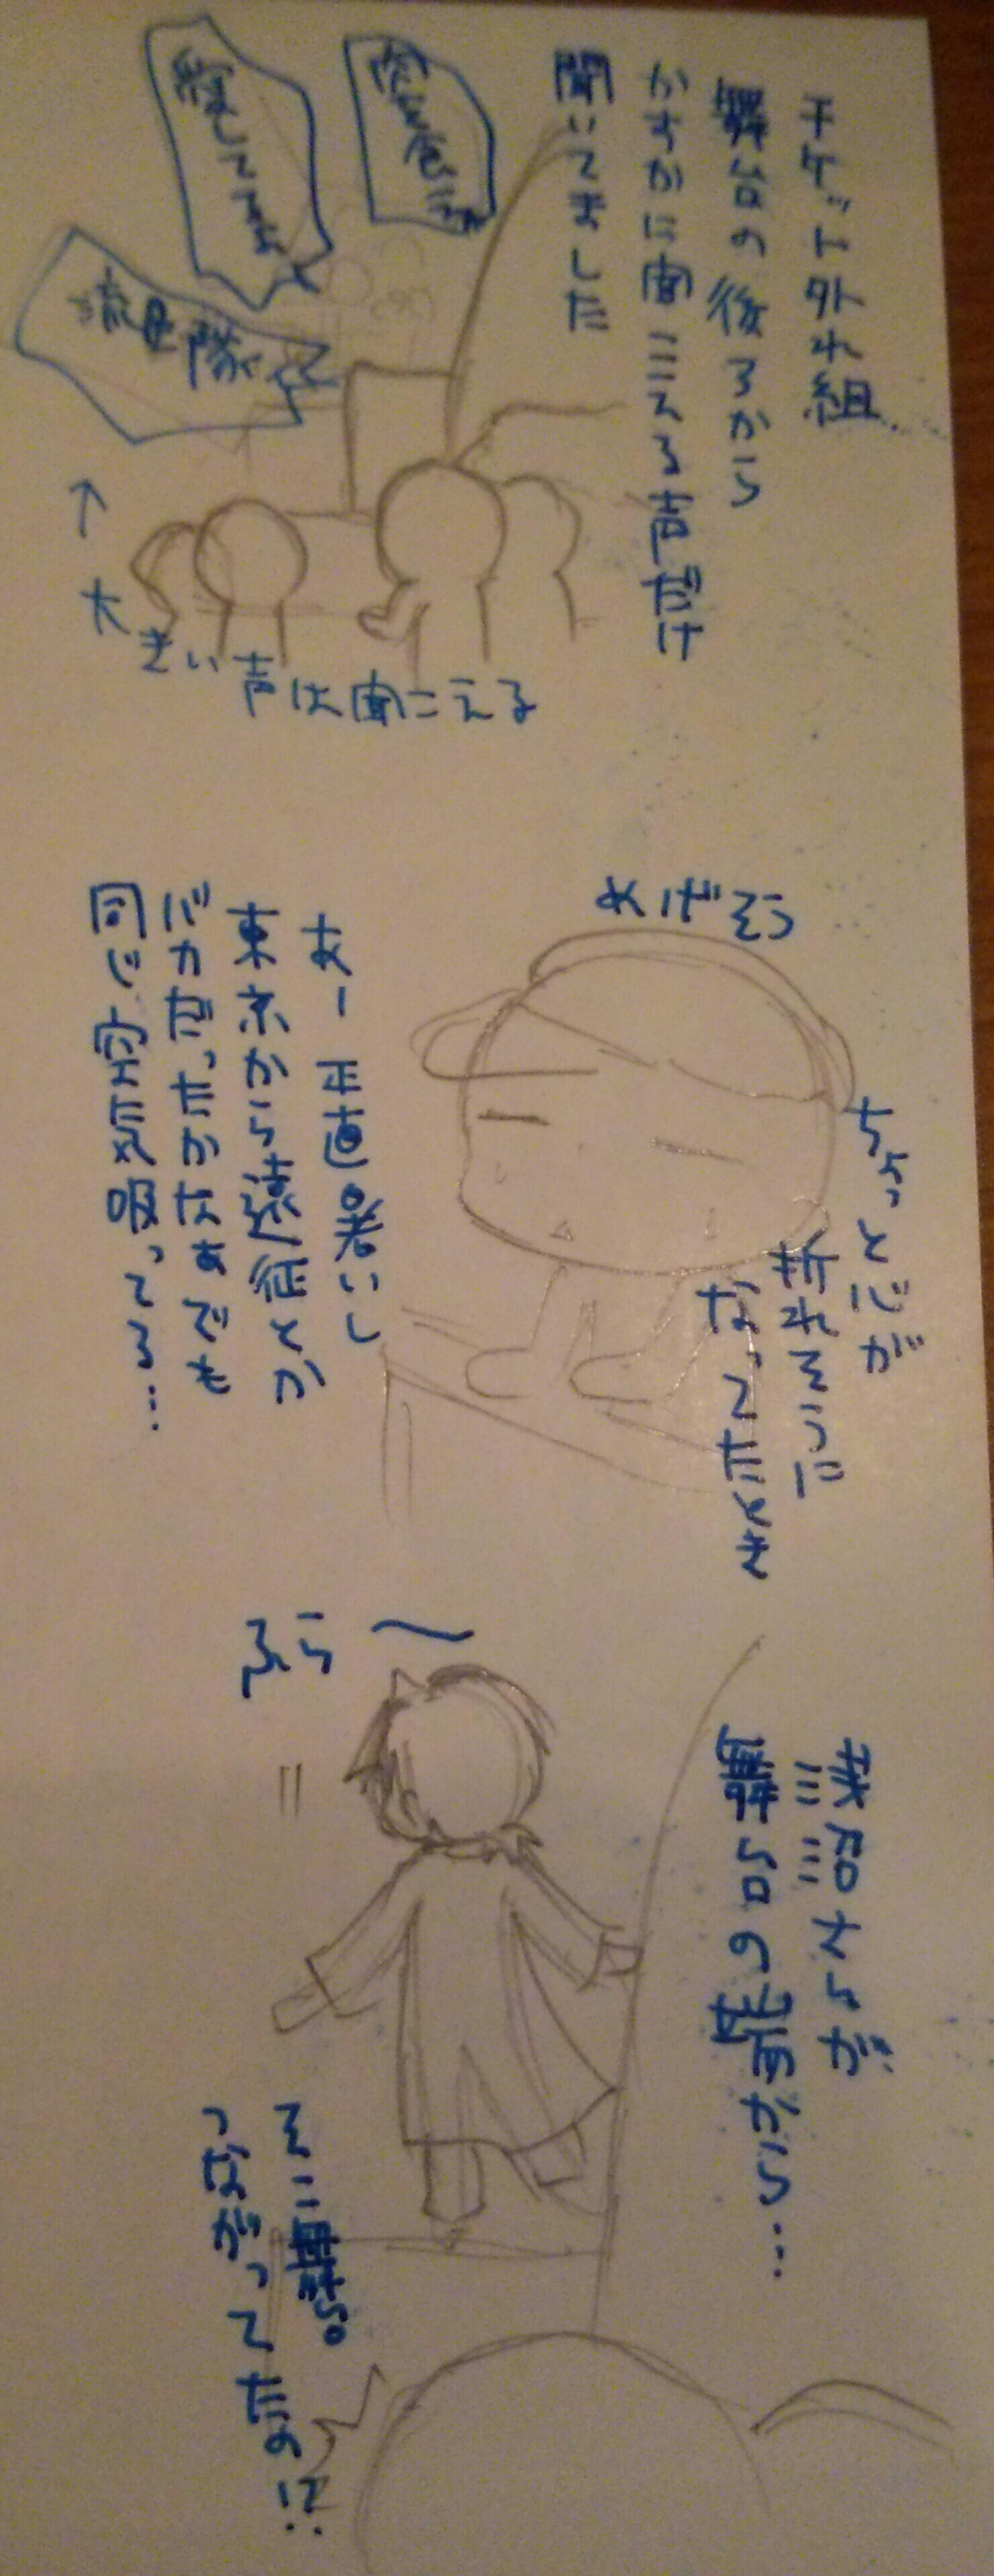 チケット外れ組
舞台の後ろから
かすかに聞こえる声だけ
聞いてました
愛してます
流星隊
↑
大きい声は聞こえる
めげそう
ちょっと心が
折れそうに
なってたとき
あー正直暑いし
東京から遠征とか
バカだったかなぁでも
同じ空気吸ってる…
浅沼さんが
舞台の端から…
ふら〜
そこ舞台
つながってたの!?